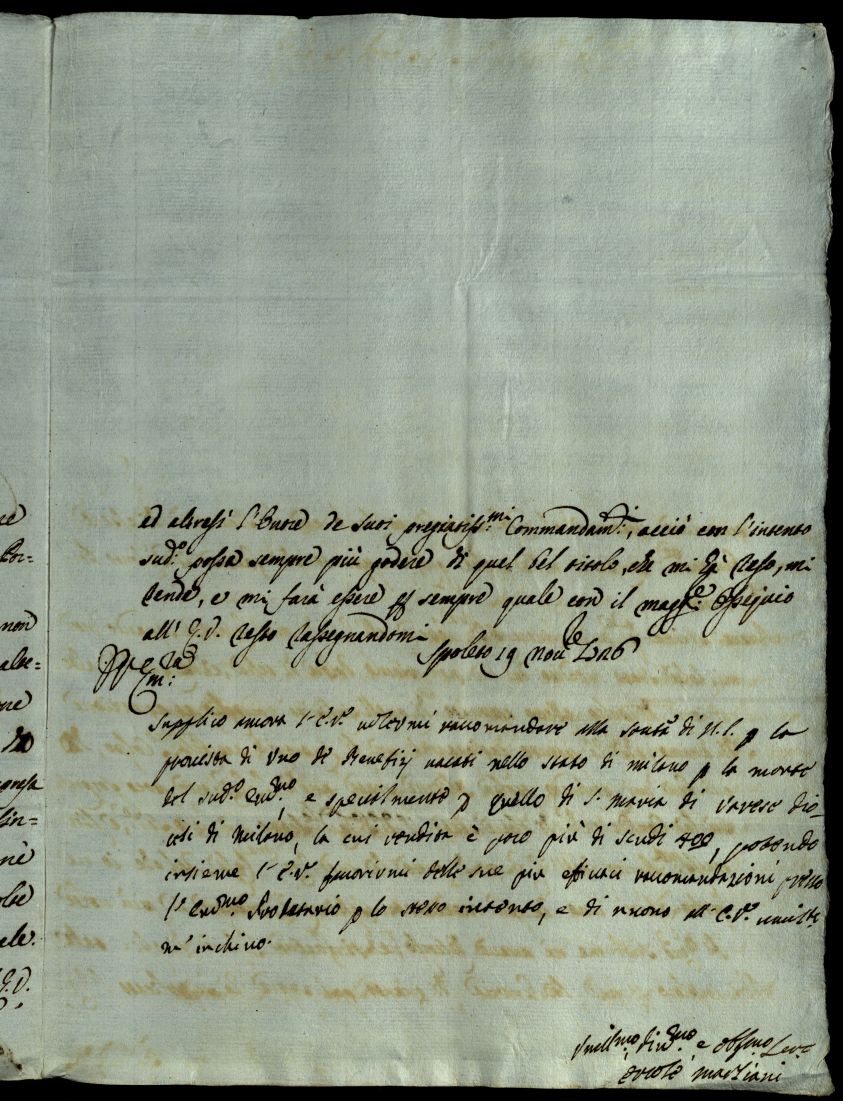 ed altresì l'onore de suoi pregiatiss.mi Commandam.ti, acciò con l'intento
sud.o possa sempre più godere di quel bel titolo, che mi hà reso, mi
rende, e mi farà essere p sempre quale con il magg.re Ossequio
all' E.V. resto rassegnandomi
Spoleto 19 nov.re 1726
Supplico ancora l'E.V. volermi raccomandare alla santà di N.S. p la
provista di uno de Benefizj vacati nello stato di milano p la morte
del sud.o Em.mo, e specialmente p quello di S. maria di varese dio-
cesi di Milano, la cui rendita è poco più di scudi 400, potendo
insieme l'E.V. favorirmi delle sue più efficaci raccomandazioni presso
l'Em.mo Prodatario p lo stesso intento, e di nuovo all'E.V. umilte
m' inchino.
Umil.mo, Div.mo, e Obl.mo Ser.e
Ercole
non
ale.
E.V.